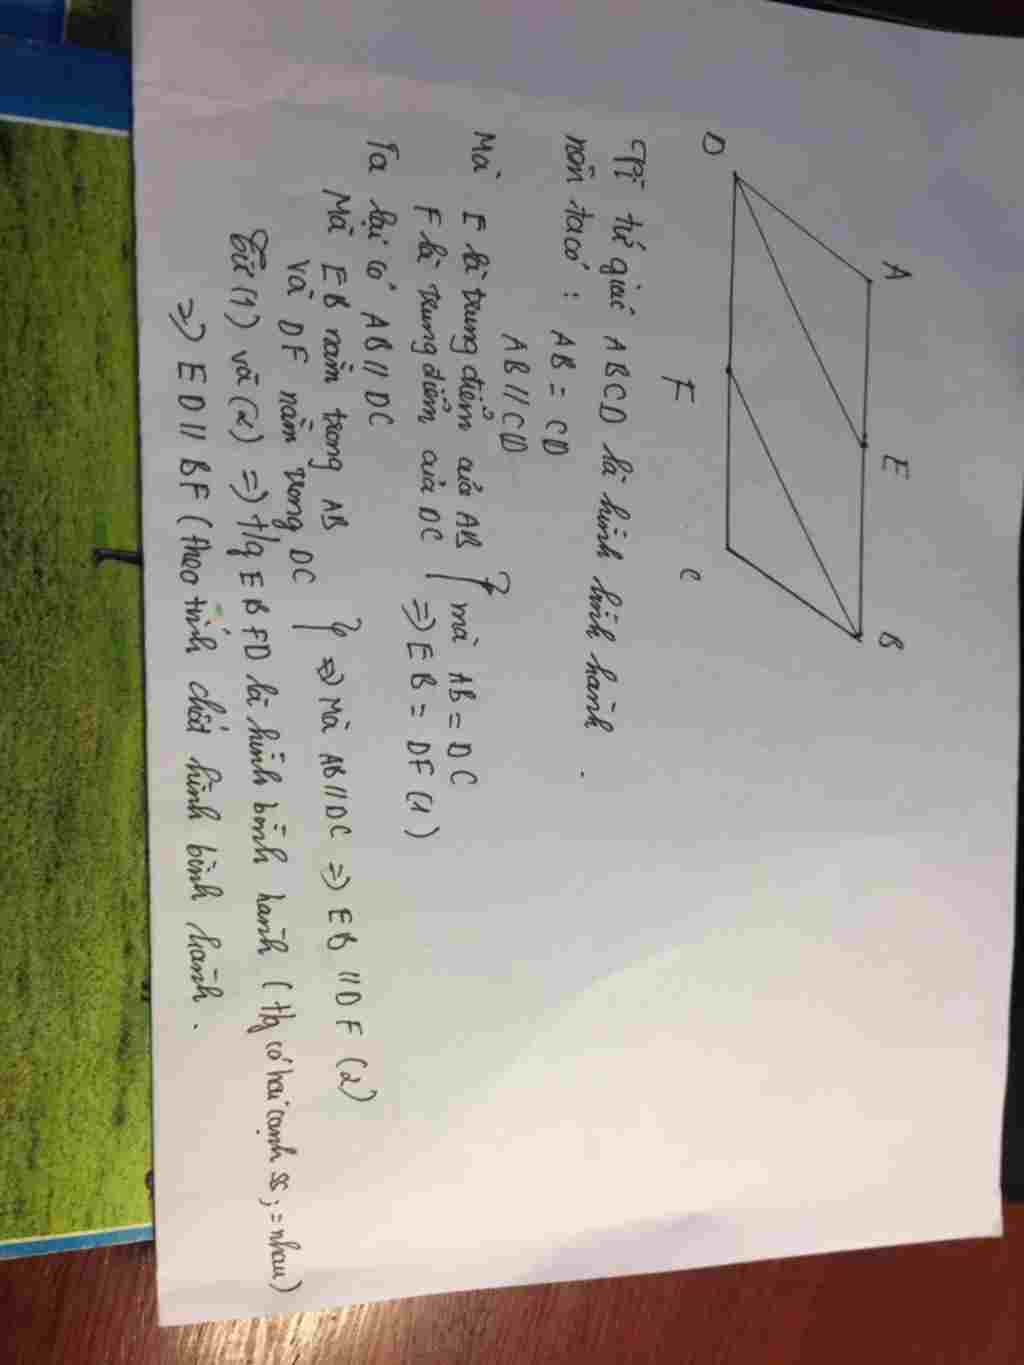 A E B
D F C
Vì tứ giác ABCD là hình bình hành
nên ta có : AB = CD
AB // CD
Mà E là trung điểm của AB } mà AB = DC
F là trung điểm của DC } => EB = DF (1)
Ta lại có AB // DC
Mà EB nằm trong AB
và DF nằm trong DC } => Mà AB // DC => EB // DF (2)
Từ (1) và (2) => t/g EBFD là hình bình hành (t/g có hai cạnh ss, = nhau)
=> ED // BF (theo tính chất hình bình hành.